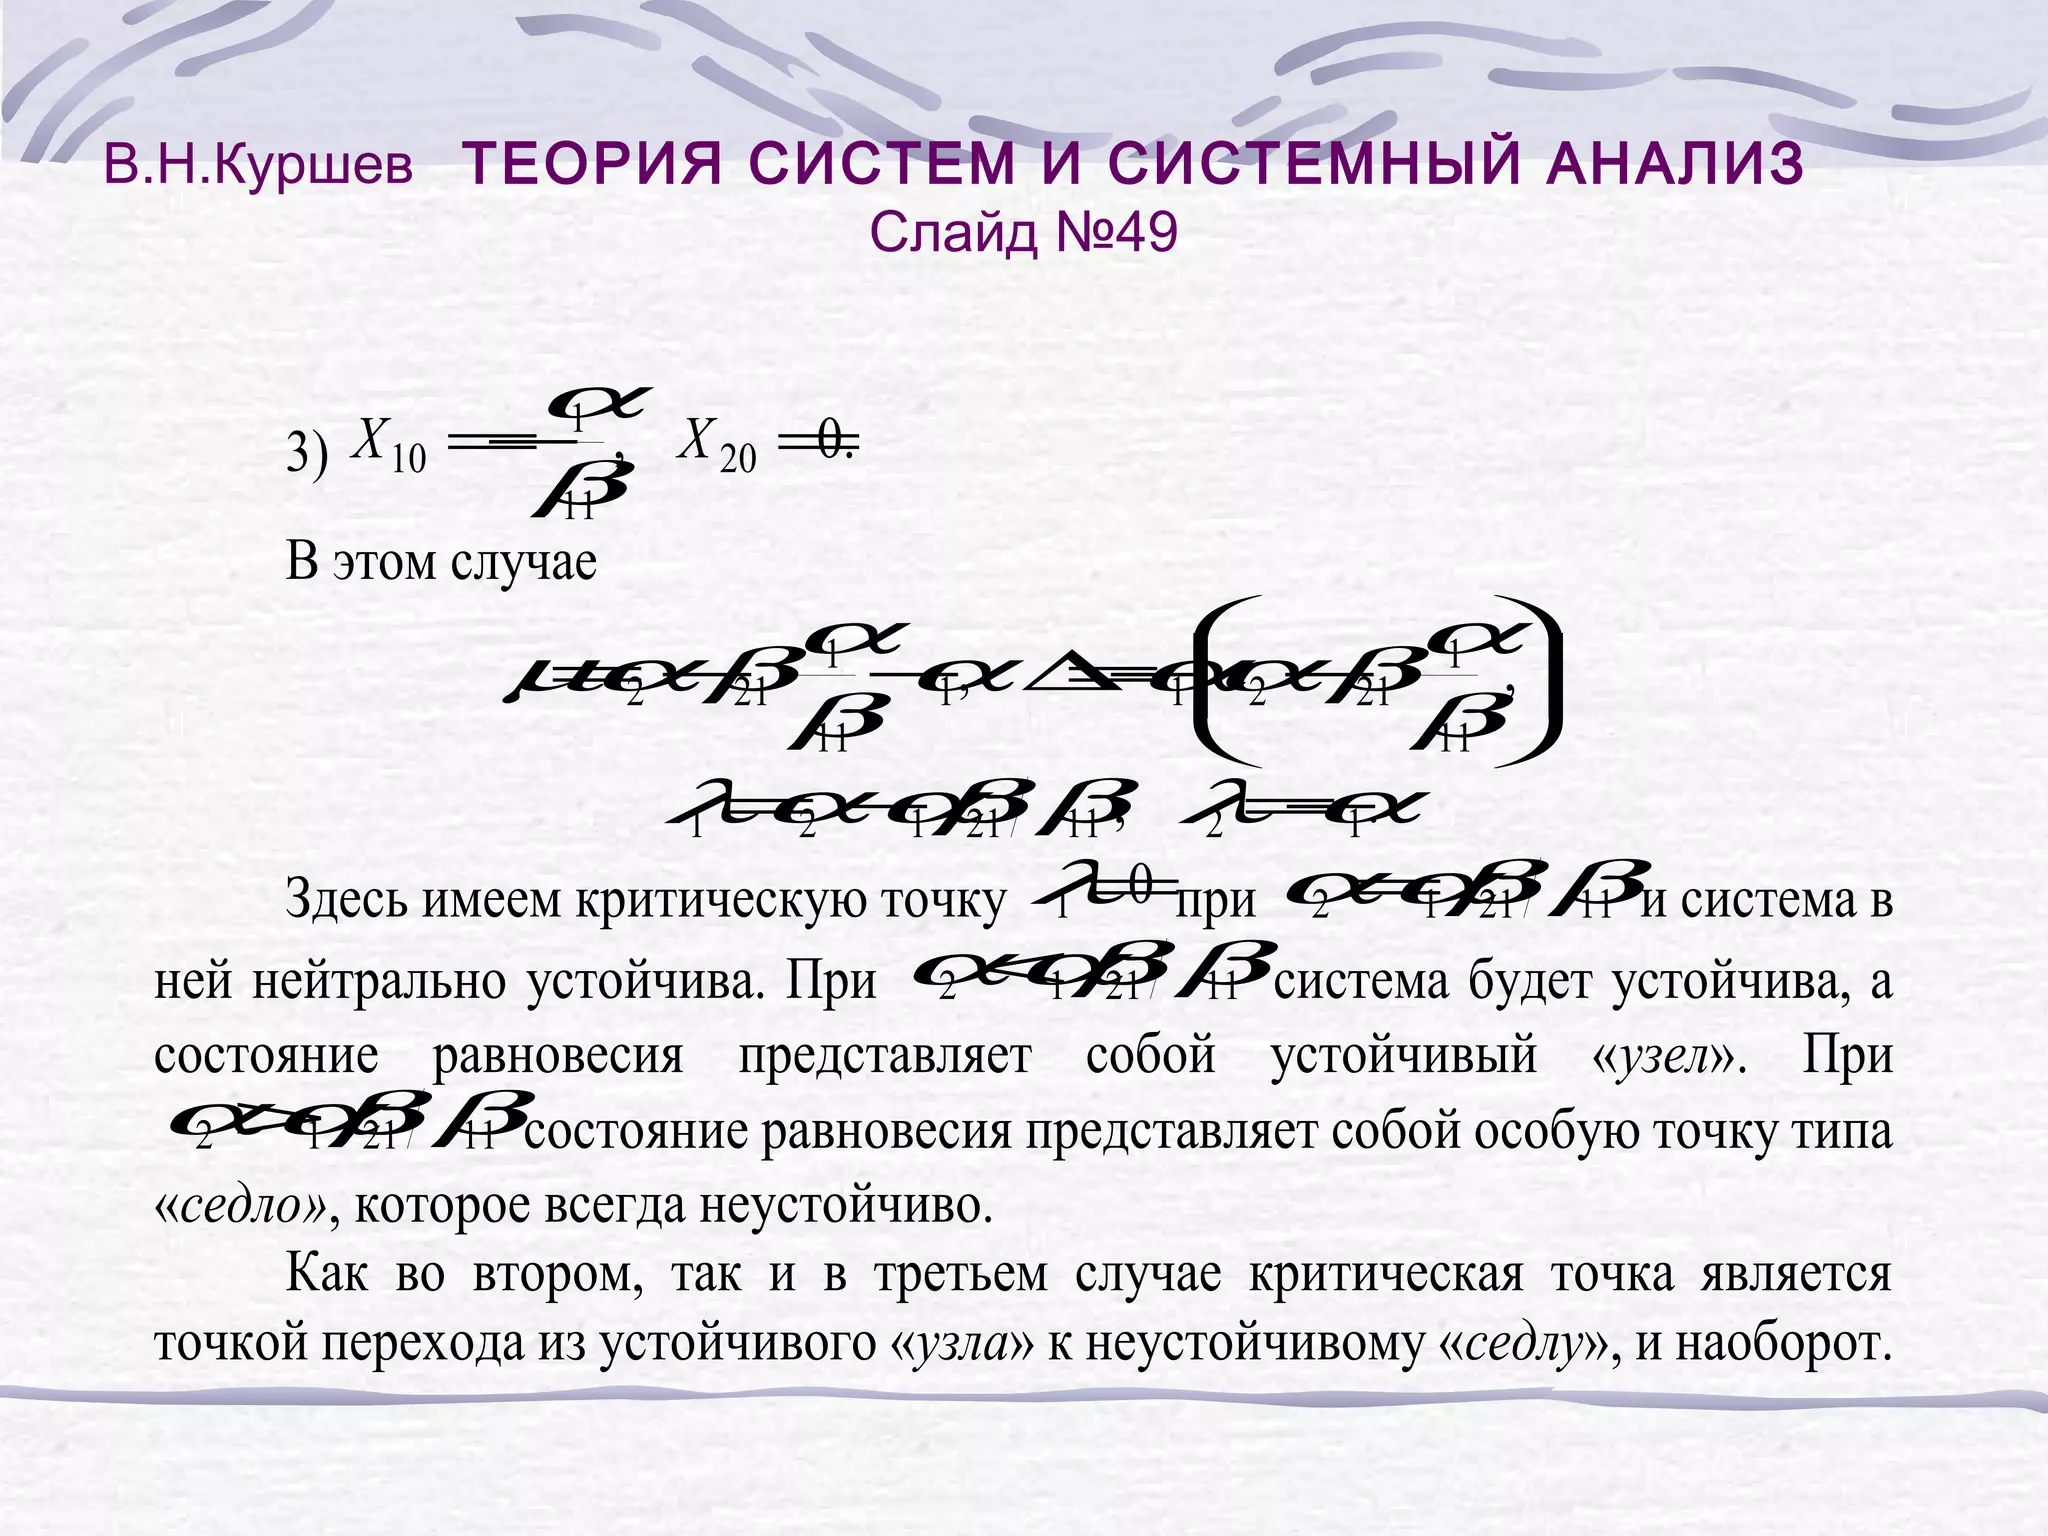 В.Н.Куршев ТЕОРИЯ СИСТЕМ И СИСТЕМНЫЙ АНАЛИЗ
Слайд №49
3) X₁₀ = α₁/β₁₁, X₂₀ = 0.
В этом случае
μ = α₂ − β₂₁ α₁/β₁₁ − α₁, Δ = −α₁(α₂ − β₂₁ α₁/β₁₁),
λ₁ = α₂ − α₁β₂₁/β₁₁, λ₂ = −α₁.
Здесь имеем критическую точку λ₁ = 0 при α₂ = α₁β₂₁/β₁₁ и система в
ней нейтрально устойчива. При α₂ < α₁β₂₁/β₁₁ система будет устойчива, а
состояние равновесия представляет собой устойчивый «узел». При
α₂ > α₁β₂₁/β₁₁ состояние равновесия представляет собой особую точку типа
«седло», которое всегда неустойчиво.
Как во втором, так и в третьем случае критическая точка является
точкой перехода из устойчивого «узла» к неустойчивому «седлу», и наоборот.